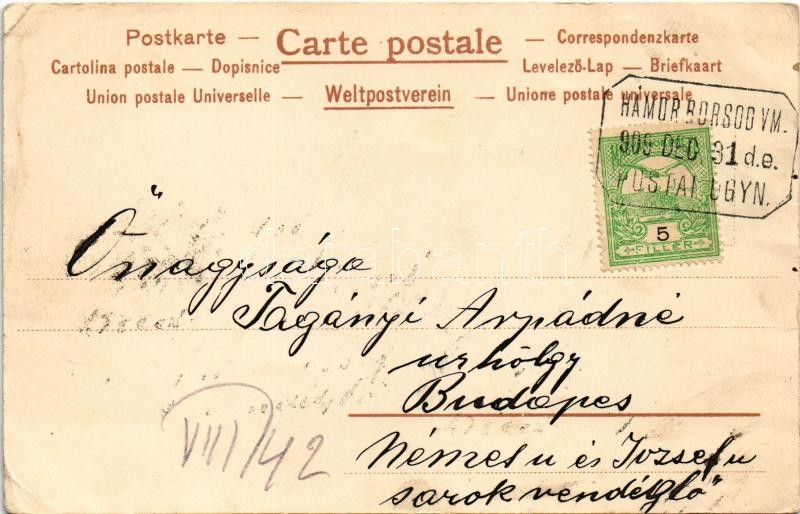 Postkarte — Carte postale — Correspondenzkarte
Cartolina postale — Dopisnice Levelező-Lap — Briefkaart
Union postale Universelle — Weltpostverein — Unione postale universale
HÁMOR BORSOD VM.
909 DEC 31 d.e.
POSTAI ÜGYN.
5
FILLÉR
Őnagysága
Tagányi Arpádné
urhölgy
Budapes
Német u és Jozsef u
sarok vendéglő"
VIII/42
darabanth